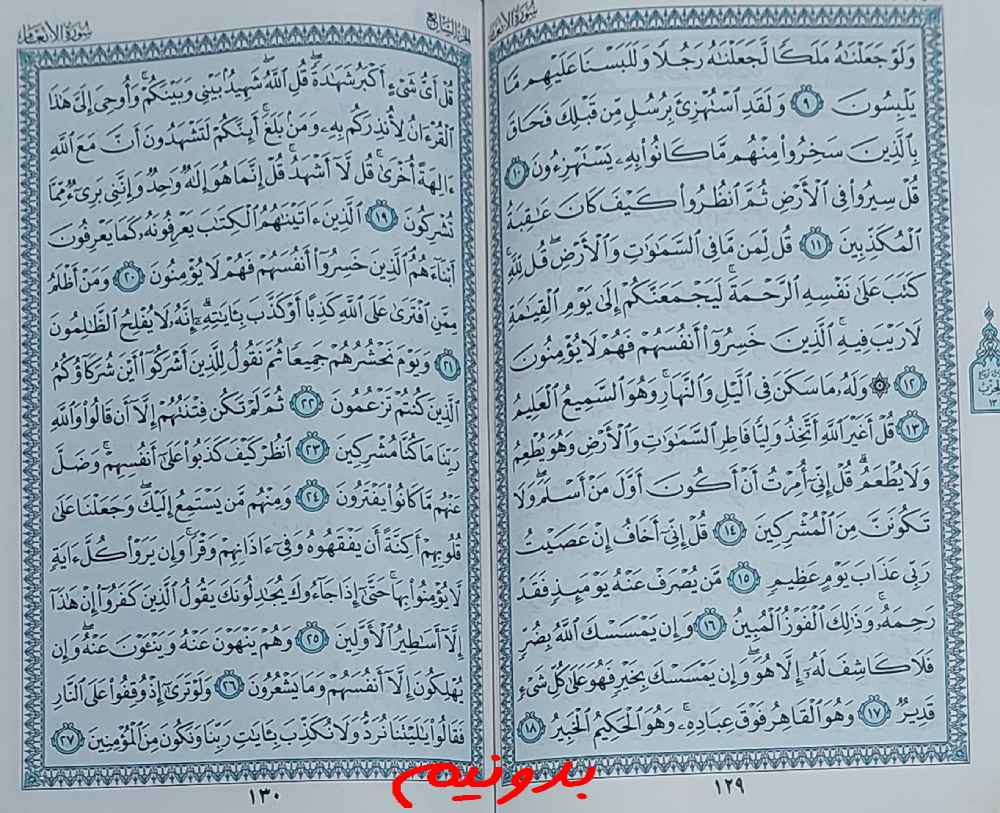 سورة الأنعام
وَلَوْ جَعَلْنَٰهُ مَلَكًا لَّجَعَلْنَٰهُ رَجُلًا وَلَلَبَسْنَا عَلَيْهِم مَّا
يَلْبِسُونَ ٩ وَلَقَدِ ٱسْتُهْزِئَ بِرُسُلٍ مِّن قَبْلِكَ فَحَاقَ
بِٱلَّذِينَ سَخِرُوا۟ مِنْهُم مَّا كَانُوا۟ بِهِۦ يَسْتَهْزِءُونَ ١٠
قُلْ سِيرُوا۟ فِى ٱلْأَرْضِ ثُمَّ ٱنظُرُوا۟ كَيْفَ كَانَ عَٰقِبَةُ
ٱلْمُكَذِّبِينَ ١١ قُل لِّمَن مَّا فِى ٱلسَّمَٰوَٰتِ وَٱلْأَرْضِ ۖ قُل لِّلَّهِ ۚ
كَتَبَ عَلَىٰ نَفْسِهِ ٱلرَّحْمَةَ ۚ لَيَجْمَعَنَّكُمْ إِلَىٰ يَوْمِ ٱلْقِيَٰمَةِ
لَا رَيْبَ فِيهِ ۚ ٱلَّذِينَ خَسِرُوٓا۟ أَنفُسَهُمْ فَهُمْ لَا يُؤْمِنُونَ
١٢ ۞ وَلَهُۥ مَا سَكَنَ فِى ٱلَّيْلِ وَٱلنَّهَارِ ۚ وَهُوَ ٱلسَّمِيعُ ٱلْعَلِيمُ
١٣ قُلْ أَغَيْرَ ٱللَّهِ أَتَّخِذُ وَلِيًّا فَاطِرِ ٱلسَّمَٰوَٰتِ وَٱلْأَرْضِ وَهُوَ يُطْعِمُ
وَلَا يُطْعَمُ ۗ قُلْ إِنِّىٓ أُمِرْتُ أَنْ أَكُونَ أَوَّلَ مَنْ أَسْلَمَ ۖ وَلَا
تَكُونَنَّ مِنَ ٱلْمُشْرِكِينَ ١٤ قُلْ إِنِّىٓ أَخَافُ إِنْ عَصَيْتُ
رَبِّى عَذَابَ يَوْمٍ عَظِيمٍ ١٥ مَّن يُصْرَفْ عَنْهُ يَوْمَئِذٍ فَقَدْ
رَحِمَهُۥ ۚ وَذَٰلِكَ ٱلْفَوْزُ ٱلْمُبِينُ ١٦ وَإِن يَمْسَسْكَ ٱللَّهُ بِضُرٍّ
فَلَا كَاشِفَ لَهُۥٓ إِلَّا هُوَ ۖ وَإِن يَمْسَسْكَ بِخَيْرٍ فَهُوَ عَلَىٰ كُلِّ شَىْءٍ
قَدِيرٌ ١٧ وَهُوَ ٱلْقَاهِرُ فَوْقَ عِبَادِهِۦ ۚ وَهُوَ ٱلْحَكِيمُ ٱلْخَبِيرُ ١٨
١٢٩
الجزء السابع
سورة الأنعام
قُلْ أَىُّ شَىْءٍ أَكْبَرُ شَهَٰدَةً ۖ قُلِ ٱللَّهُ ۖ شَهِيدٌۢ بَيْنِى وَبَيْنَكُمْ ۚ وَأُوحِىَ إِلَىَّ هَٰذَا
ٱلْقُرْءَانُ لِأُنذِرَكُم بِهِۦ وَمَنۢ بَلَغَ ۚ أَئِنَّكُمْ لَتَشْهَدُونَ أَنَّ مَعَ ٱللَّهِ
ءَالِهَةً أُخْرَىٰ ۚ قُل لَّآ أَشْهَدُ ۚ قُلْ إِنَّمَا هُوَ إِلَٰهٌ وَٰحِدٌ وَإِنَّنِى بَرِىٓءٌ مِّمَّا
تُشْرِكُونَ ١٩ ٱلَّذِينَ ءَاتَيْنَٰهُمُ ٱلْكِتَٰبَ يَعْرِفُونَهُۥ كَمَا يَعْرِفُونَ
أَبْنَآءَهُمُ ٱلَّذِينَ خَسِرُوٓا۟ أَنفُسَهُمْ فَهُمْ لَا يُؤْمِنُونَ ٢٠ وَمَنْ أَظْلَمُ
مِمَّنِ ٱفْتَرَىٰ عَلَى ٱللَّهِ كَذِبًا أَوْ كَذَّبَ بِـَٔايَٰتِهِۦٓ ۗ إِنَّهُۥ لَا يُفْلِحُ ٱلظَّٰلِمُونَ
٢١ وَيَوْمَ نَحْشُرُهُمْ جَمِيعًا ثُمَّ نَقُولُ لِلَّذِينَ أَشْرَكُوٓا۟ أَيْنَ شُرَكَآؤُكُمُ
ٱلَّذِينَ كُنتُمْ تَزْعُمُونَ ٢٢ ثُمَّ لَمْ تَكُن فِتْنَتُهُمْ إِلَّآ أَن قَالُوا۟ وَٱللَّهِ
رَبِّنَا مَا كُنَّا مُشْرِكِينَ ٢٣ ٱنظُرْ كَيْفَ كَذَبُوا۟ عَلَىٰٓ أَنفُسِهِمْ ۚ وَضَلَّ
عَنْهُم مَّا كَانُوا۟ يَفْتَرُونَ ٢٤ وَمِنْهُم مَّن يَسْتَمِعُ إِلَيْكَ ۖ وَجَعَلْنَا عَلَىٰ
قُلُوبِهِمْ أَكِنَّةً أَن يَفْقَهُوهُ وَفِىٓ ءَاذَانِهِمْ وَقْرًا ۚ وَإِن يَرَوْا۟ كُلَّ ءَايَةٍ
لَّا يُؤْمِنُوا۟ بِهَا ۚ حَتَّىٰٓ إِذَا جَآءُوكَ يُجَٰدِلُونَكَ يَقُولُ ٱلَّذِينَ كَفَرُوٓا۟ إِنْ هَٰذَآ
إِلَّآ أَسَٰطِيرُ ٱلْأَوَّلِينَ ٢٥ وَهُمْ يَنْهَوْنَ عَنْهُ وَيَنْـَٔوْنَ عَنْهُ ۖ وَإِن
يُهْلِكُونَ إِلَّآ أَنفُسَهُمْ وَمَا يَشْعُرُونَ ٢٦ وَلَوْ تَرَىٰٓ إِذْ وُقِفُوا۟ عَلَى ٱلنَّارِ
فَقَالُوا۟ يَٰلَيْتَنَا نُرَدُّ وَلَا نُكَذِّبَ بِـَٔايَٰتِ رَبِّنَا وَنَكُونَ مِنَ ٱلْمُؤْمِنِينَ ٢٧
١٣٠
بدونیم